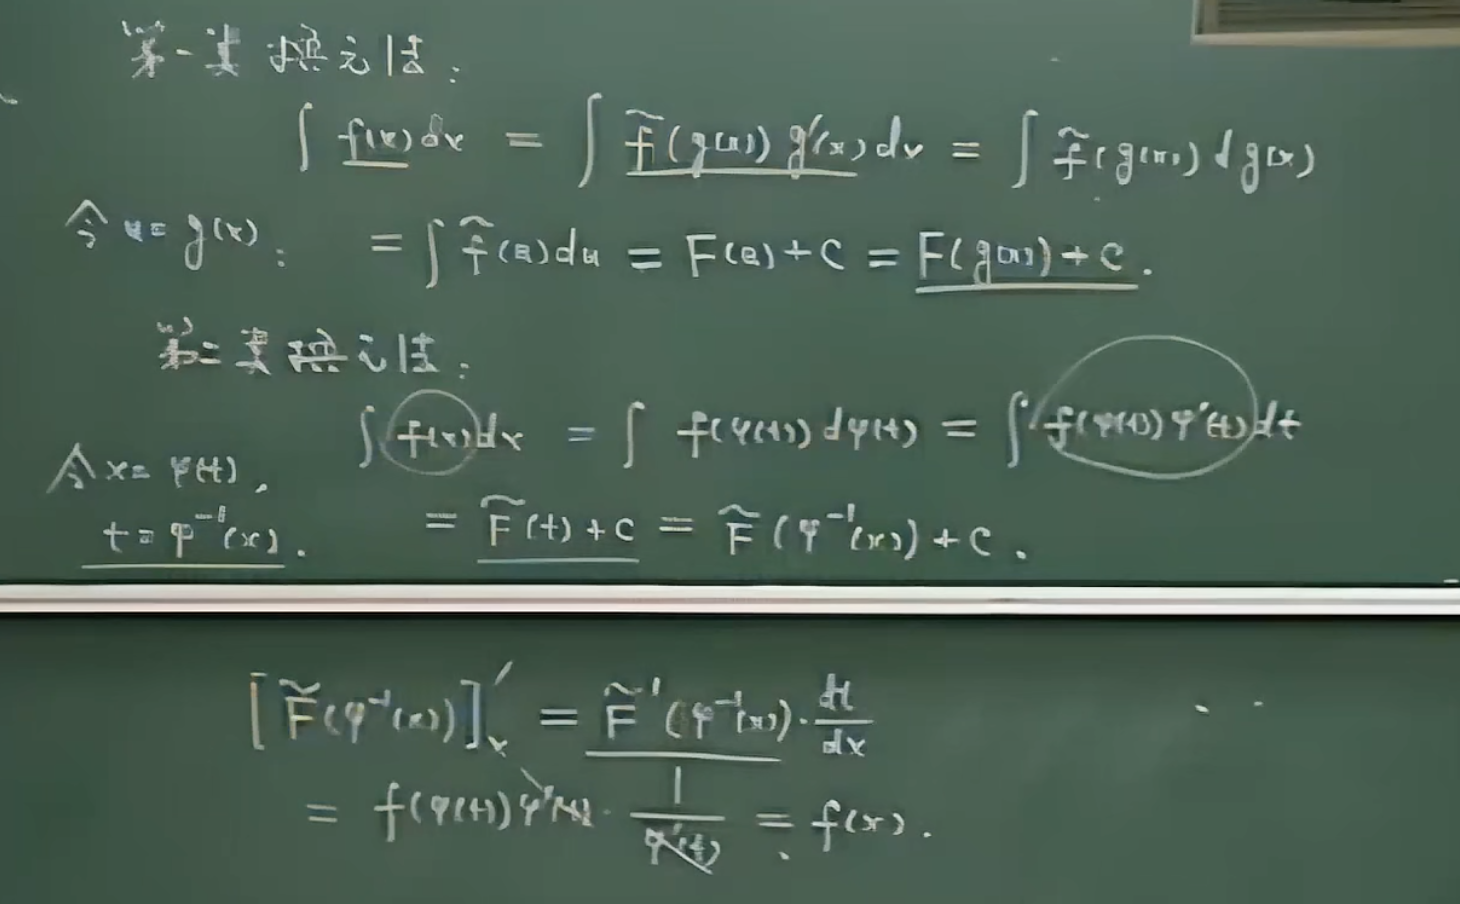 第一类换元法:
∫ f(x)dx = ∫ f̃(g(x)) g'(x)dx = ∫ f̃(g(x)) dg(x)
令 u = g(x): = ∫ f̃(u)du = F(u)+C = F(g(x))+C.
第二类换元法:
∫ f(x)dx = ∫ f(φ(t))dφ(t) = ∫ f(φ(t))φ'(t)dt
令 x = φ(t),
t = φ⁻¹(x). = F̃(t)+C = F̃(φ⁻¹(x))+C.
[F̃(φ⁻¹(x))]'ₓ = F̃'(φ⁻¹(x))·dt/dx
= f(φ(t))φ'(t)·1/φ'(t) = f(x).